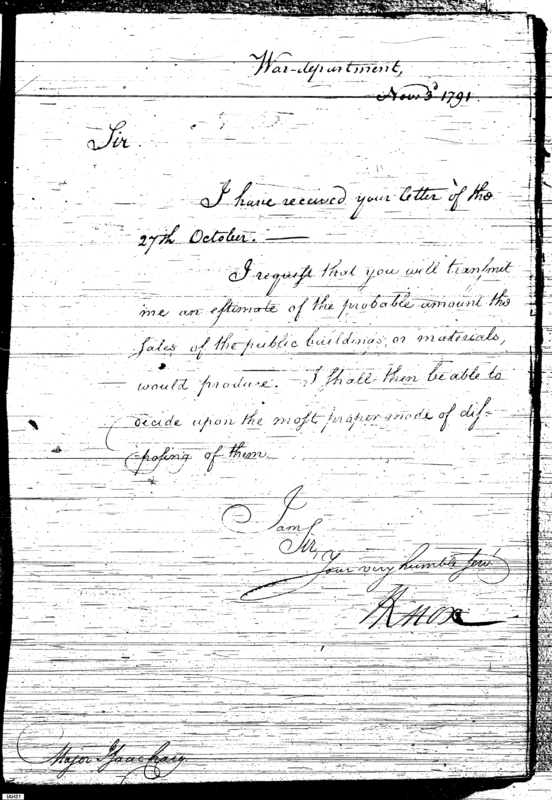 War-department,
Nov. 3d 1791.
Sir
I have received your letter of the
27th October. —
I request that you will transmit
me an estimate of the probable amount the
Sales of the public buildings, or materials,
would produce. I shall then be able to
decide upon the most proper mode of dis-
-posing of them
I am
Sir,
Your very humble Serv.t
HKnox
Major Isaac Craig
IAH31